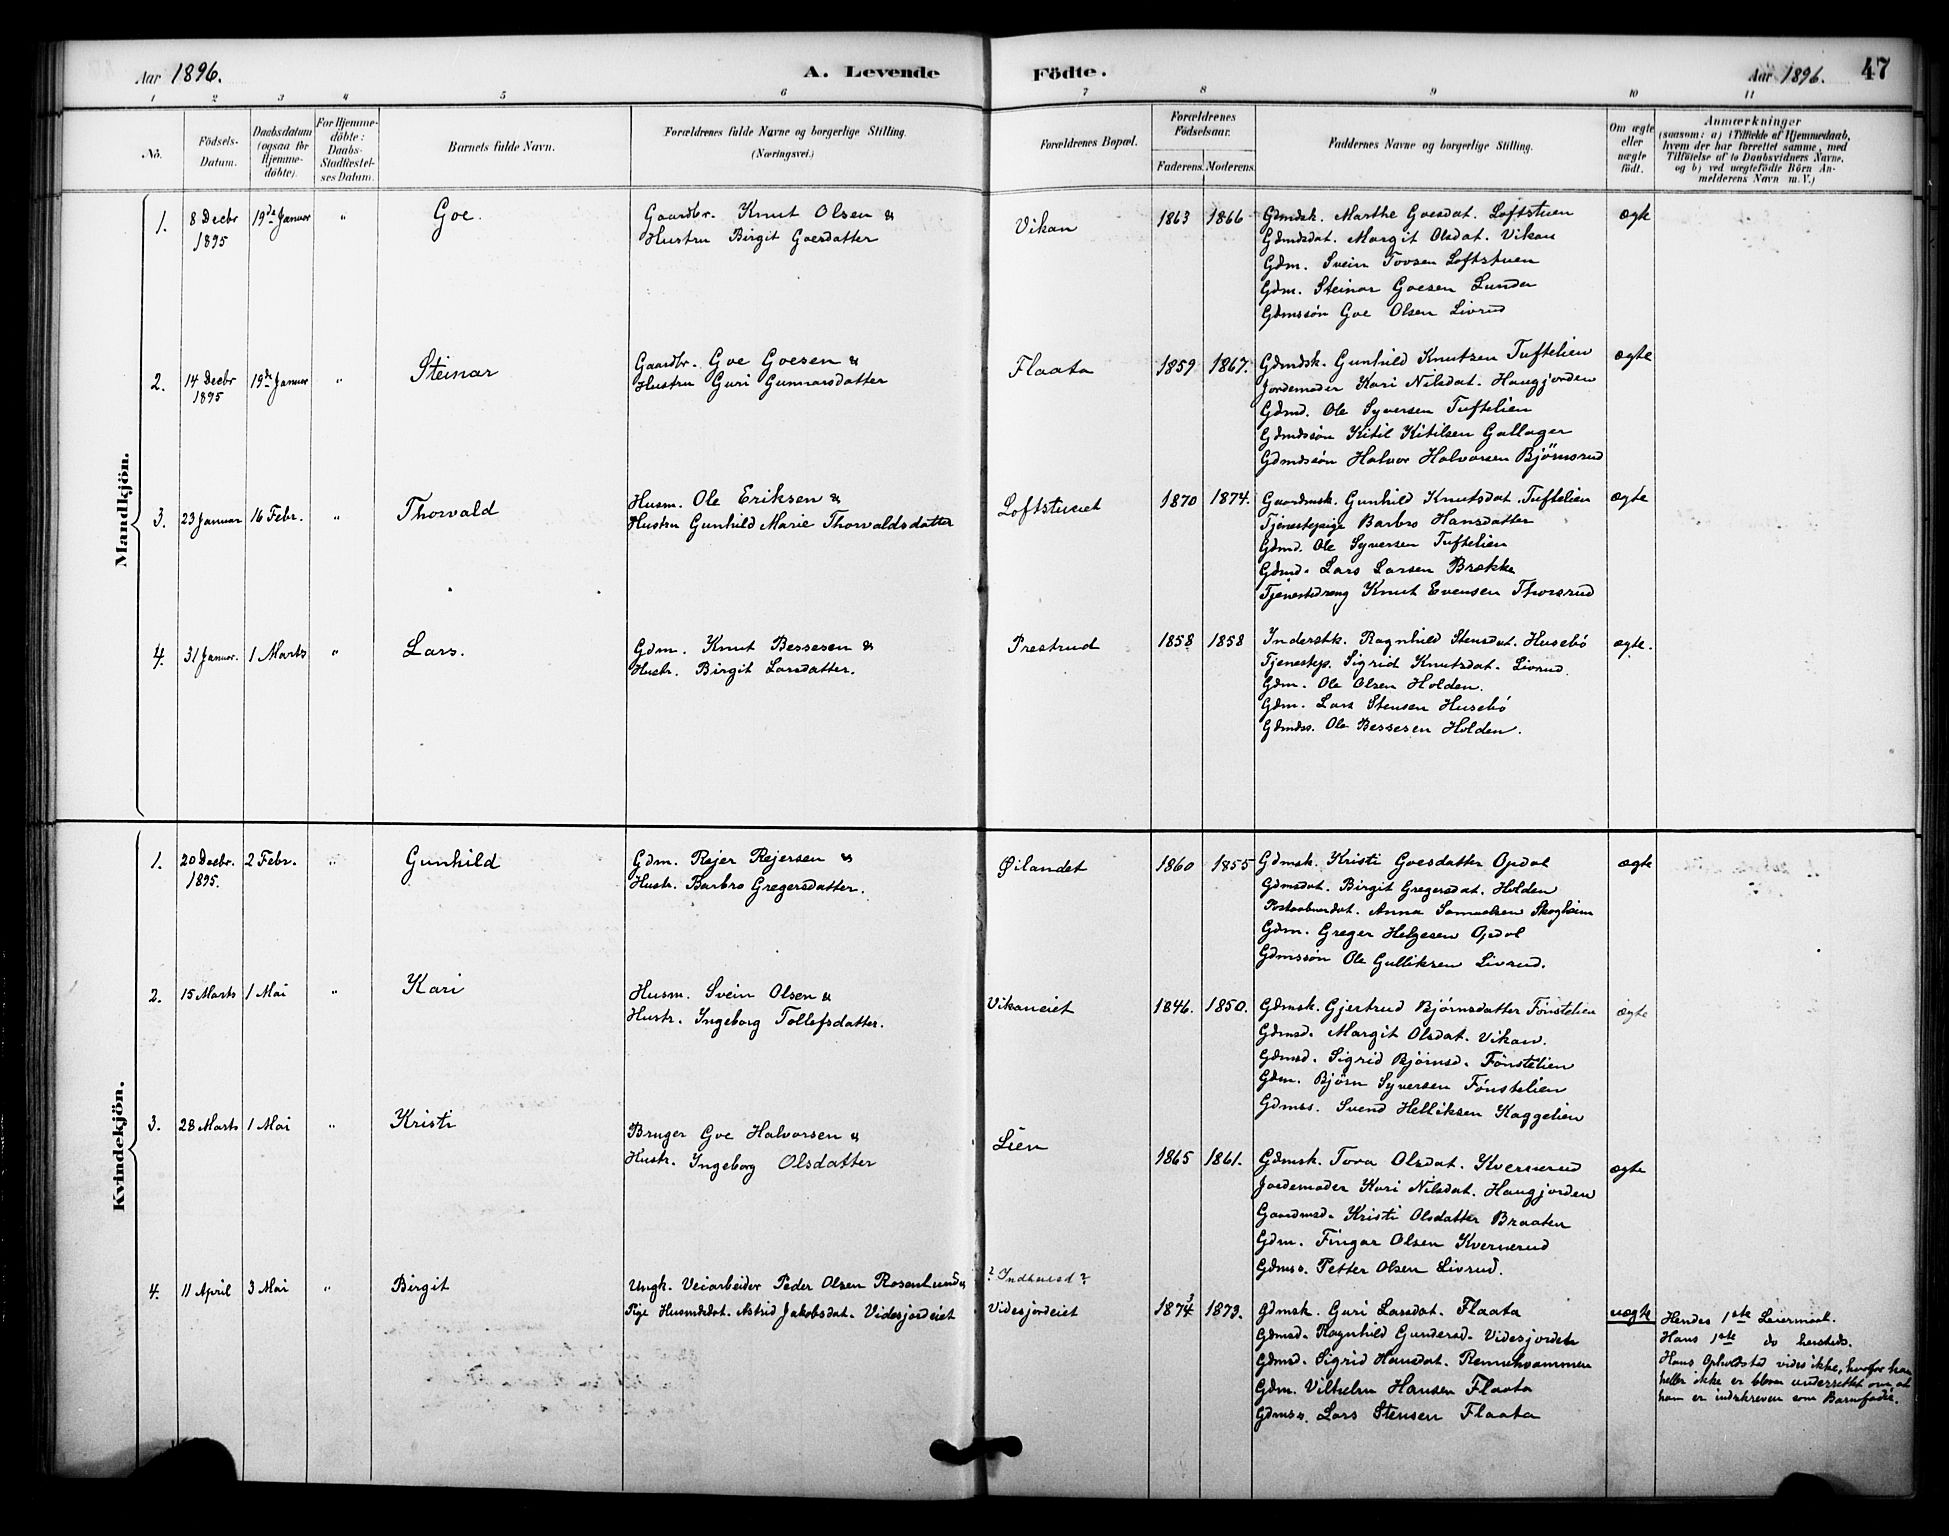 Aar 1896.
A. Levende Födte.
Aar 1896. 47
1 2 3 4 5 6 7 8 9 10 11
No.
Födsels-
Datum.
Daabsdatum
(ogsaa for
Hjemme-
döbte).
For Hjemme-
döbte:
Daabs-
Stadfæstel-
ses Datum.
Barnets fulde Navn.
Forældrenes fulde Navne og borgerlige Stilling.
(Næringsvei.)
Forældrenes Bopæl.
Forældrenes
Födselsaar.
Faderens. Moderens.
Faddernes Navne og borgerlige Stilling.
Om ægte
eller
uægte
födt.
Anmærkninger
(saasom: a) i Tilfælde af Hjemmedaab,
hvem der har forrettet samme, med
Tilföielse af to Daabsvidners Navne,
og b) ved uægtefödte Börn An-
melderens Navn m. V.)
Mandkjön.
1. 8 Decbr 1895 19de Januar " Goe.
Gaardbr. Knut Olsen &
Hustru Birgit Goesdatter
Vikan 1863 1866
Gdmdsk. Marthe Goesdat. Loftstuen
Gdmdsdat. Margit Olsdat. Vikan
Gdm. Svein Tovsen Loftstuen
Gdm. Steinar Goesen Lunder
Gdmssön Goe Olsen Livrud
ægte
2. 14 Decbr 1895 19de Januar " Steinar
Gaardbr. Goe Goesen &
Hustru Guri Gunnarsdatter
Flaata 1859 1867.
Gdmdsk. Gunhild Knutsen Tuftelien
Jordemoder Kari Nilsdat. Haugjorden
Gdmd. Ole Syversen Tuftelien
Gdmdssön Kitil Kitilsen Gallager
Gdmdssön Halvor Halvorsen Bjørnsrud
ægte
3. 23 Januar 16 Febr. " Thorvald
Husm. Ole Eriksen &
Hustru Gunhild Marie Thorvaldsdatter
Loftstueiet 1870 1874.
Gaardmsk. Gunhild Knutsdat. Tuftelien
Tjenestepige Barbro Hansdatter
Gdmd. Ole Syversen Tuftelien
Gdmd. Lars Larsen Brække
Tjenestedreng Knut Evensen Thorsrud
ægte
4. 31 Januar. 1 Marts " Lars.
Gdm. Knut Bessesen &
Hustr. Birgit Larsdatter.
Prestrud 1858 1858
Inderstk. Ragnhild Stensdat. Husebö
Tjenestep. Sigrid Knutsdat. Livrud
Gdm. Ole Olsen Holden.
Gdm. Lars Stensen Husebö
Gdmdss. Ole Bessesen Holden.
ægte.
Kvindekjön.
1. 20 Decbr. 1895. 2 Febr. " Gunhild
Gdm. Rejer Rejersen &
Hustr. Barbro Gregersdatter.
Øilandet 1860 1855
Gdmsk. Kristi Goesdatter Opdal
Gdmsdat. Birgit Gregersdat. Holden
Postaabnerdat. Anna Samuelsen Skogheim
Gdm. Greger Helgesen Opdal
Gdmssön Ole Gulliksen Livrud.
ægte
2. 15 Marts 1 Mai " Kari
Husm. Svein Olsen &
Hustr. Ingeborg Tollefsdatter.
Vikaneiet 1846. 1850.
Gdmsk. Gjertrud Bjørnsdatter Fønstelien
Gdmsd. Margit Olsdat. Vikan.
Gdmsd. Sigrid Bjørnsd. Fønstelien
Gdm. Bjørn Syversen Fønstelien
Gdmss. Svend Helliksen Kaggelien
ægte
3. 28 Marts 1 Mai " Kristi
Bruger Goe Halvorsen &
Hustr. Ingeborg Olsdatter
Lien 1865 1861.
Gdmsk. Tora Olsdat. Kvernerud
Jordemoder Kari Nilsdat. Haugjorden
Gaardmsd. Kristi Olsdatter Braaten
Gdm. Fingar Olsen Kvernerud
Gdmss. Petter Olsen Livrud.
ægte
4. 11 April 3 Mai " Birgit
Ungk. Veiarbeider Peder Olsen Rosenlund &
Pige Husmdsdat. Astrid Jakobsdat. Videsjordeiet
? Indherred?
Videsjordeiet 1874 3 1873.
Gdmsk. Guri Larsdat. Flaata
Gdmsd. Ragnhild Gundersd. Videsjordet
Gdmsd. Sigrid Hansdat. Rennehvammen
Gdm. Vilhelm Hansen Flaata
Gdmss. Lars Stensen Flaata
uægte
Hendes 1ste Leiermaal.
Hans 1ste do hersteds.
Hans Opholdstd vides ikke, hvorfor han
heller ikke er bleven underrettet om, at
han er indskreven som Barnefader.